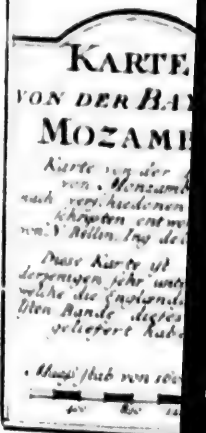 KARTE
VON DER BAY
MOZAMB
Karte von der
von Monzamb
nach verschiedenen
schriften entwor
von N. Bellin. Ing de
Diese Karte ist
derjenigen sehr unt
welche die Englænd
Iten Bande dieses
geliefert habe
Maas stab von
400 800